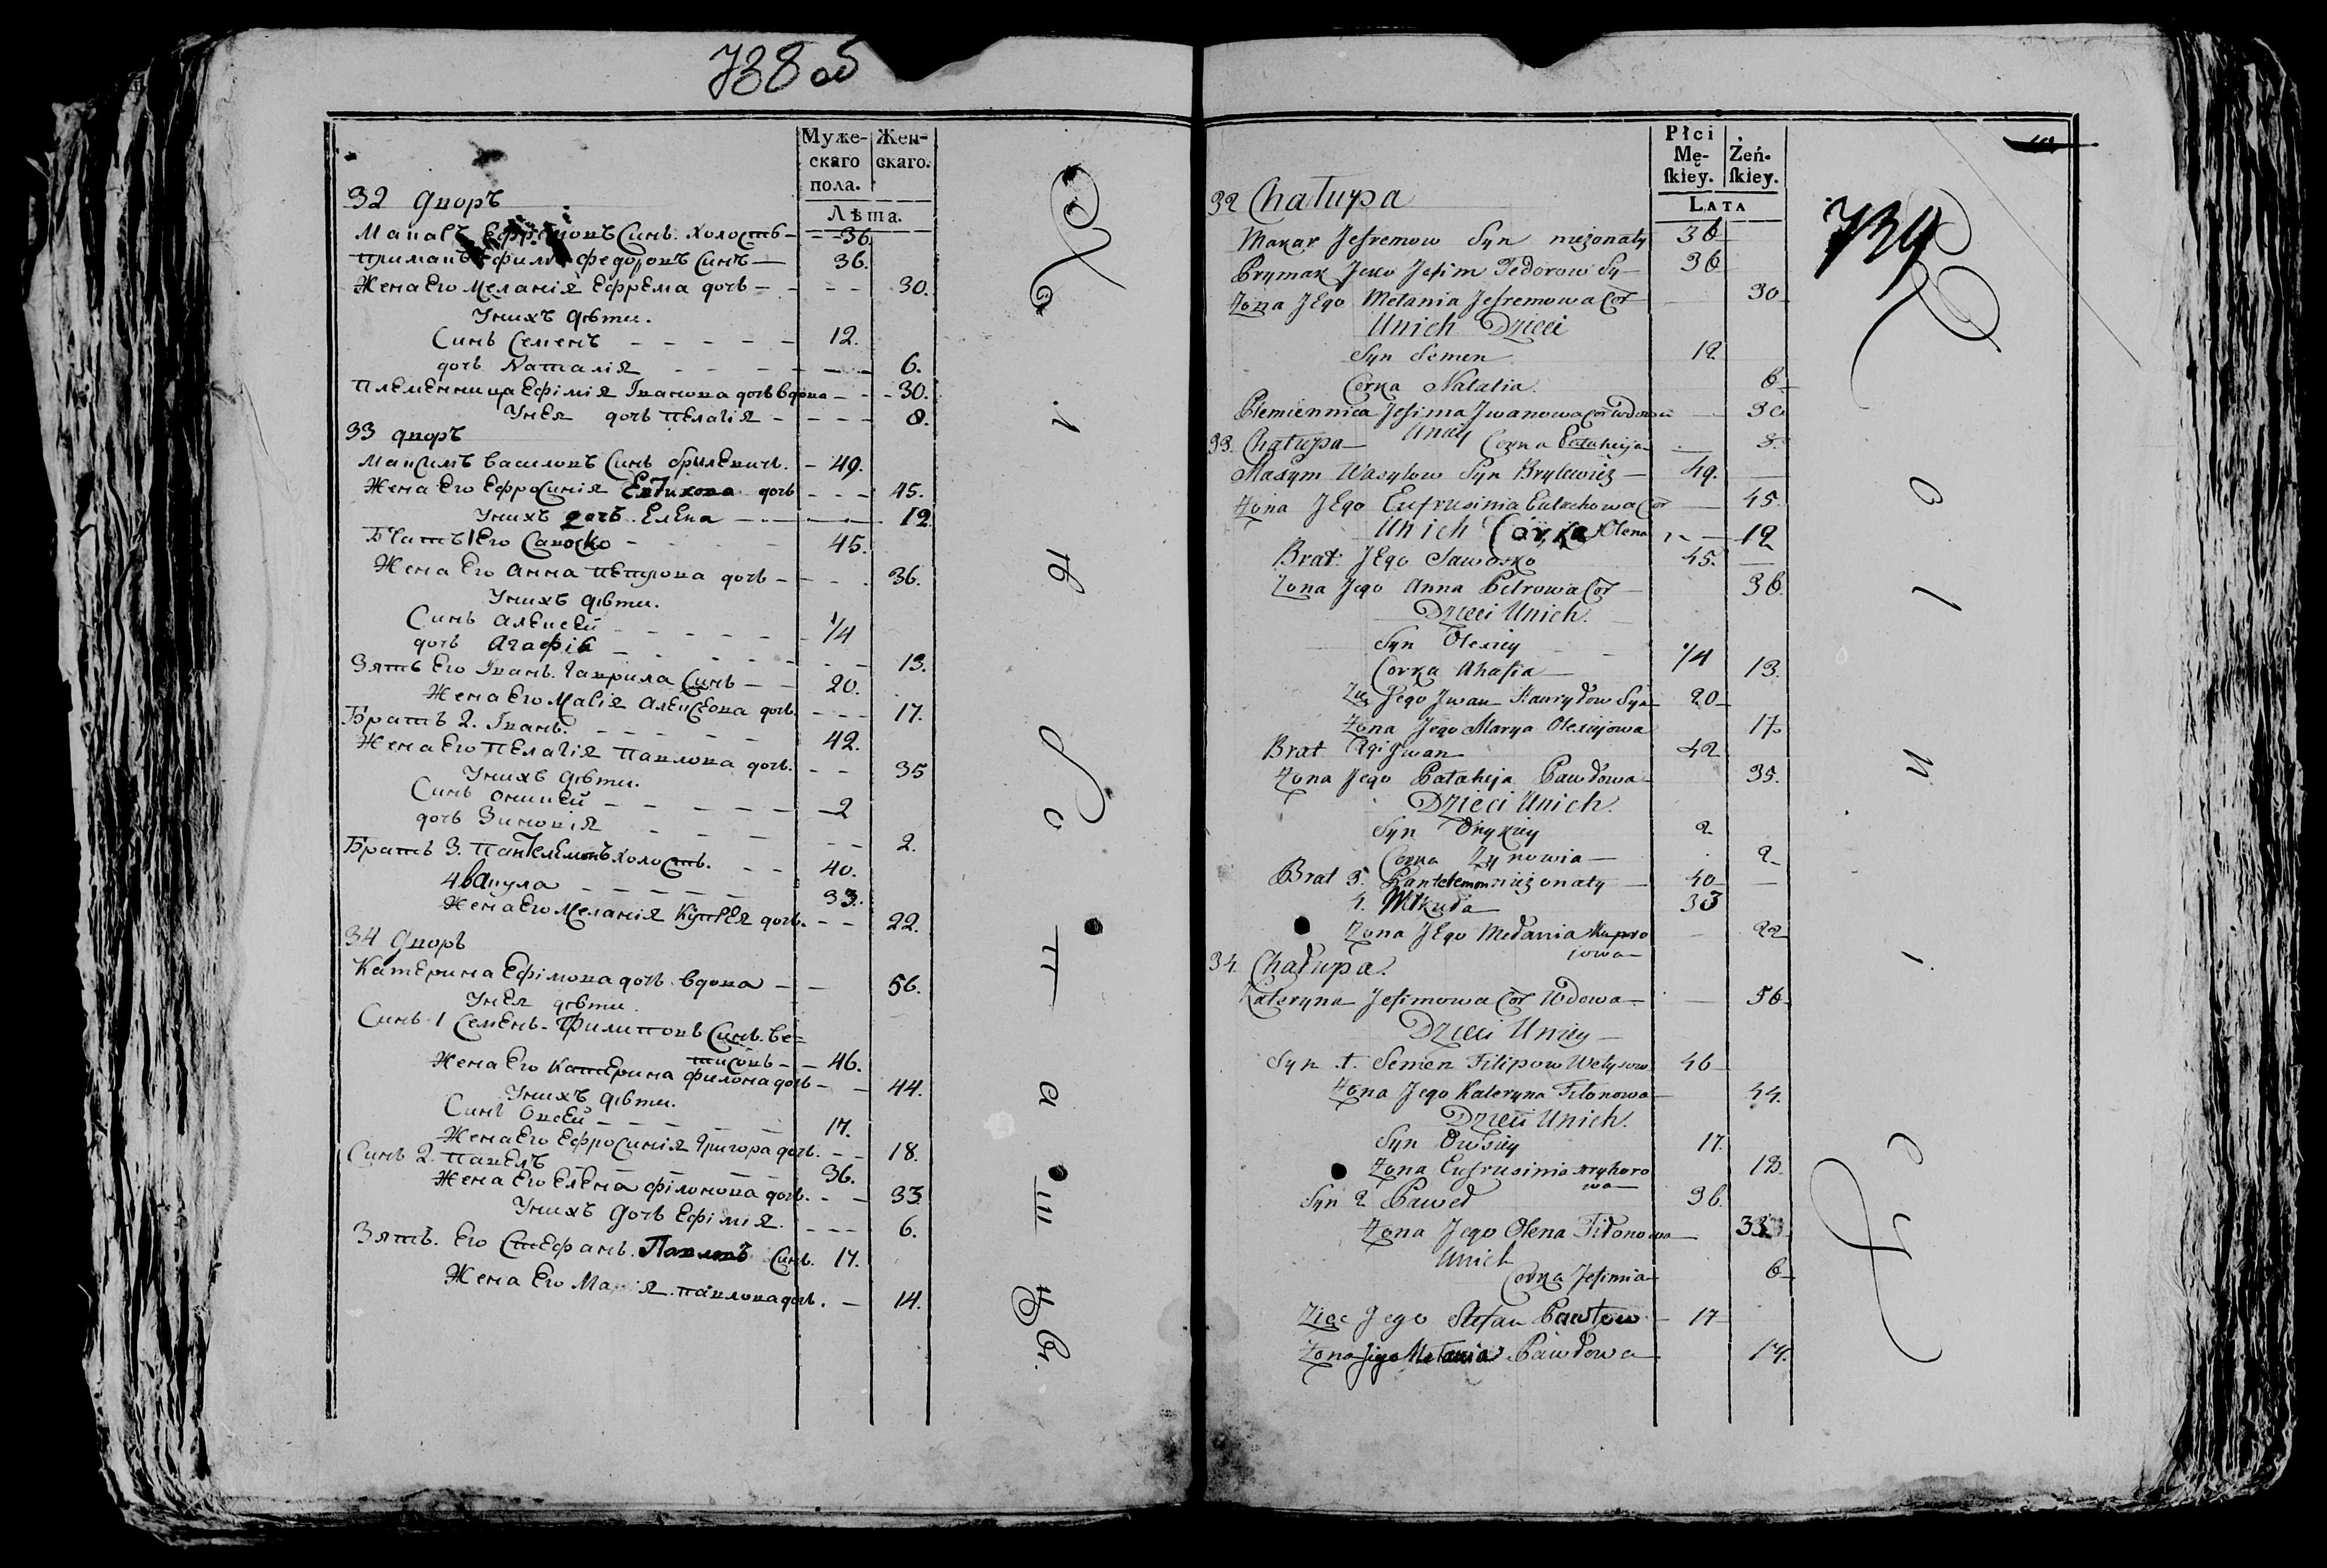 738 об
Муже-
скаго
пола.
Жен-
скаго.
Лѣта.
32 дворъ
Макаръ Ефремовъ Синъ. холостъ - 36
Примакъ Ефимъ Федоровъ Синъ - 36.
Жена Его Меланія Ефрема дочь - 30.
Унихъ дѣти.
Синъ Семенъ - 12.
дочь Наталія - 6.
Племенница Ефімія Іванова дочь вдова - 30.
Унея дочь Пелагія - 8.
33 дворъ
Максимъ Василовъ Синъ Брилевичъ. - 49.
Жена Его Ефросинія Евтихова дочь - 45.
Унихъ дочь Елена - 12
Братъ 1 Его Савоско - 45.
Жена Его Анна Петрова дочь - 36.
Унихъ дѣти.
Синъ Алексей - 1/4
дочь Агафія - 13.
Зять Его Іванъ. Гаврила Синъ - 20.
Жена Его Марія Алексеова дочь. - 17.
Братъ 2. Іванъ. - 42.
Жена Его Пелагія Павлова дочь. - 35
Унихъ дѣти.
Синъ Оникей - 2
дочь Зиновія - 2.
Братъ 3. Пантелемонъ холостъ. - 40.
4 Вакула - 33.
Жена Его Меланія Купрея дочь. - 22.
34 дворъ
Катерина Ефімова дочь вдова - 56.
Унея дѣти
Синъ 1 Семенъ Филиповъ Синъ. Ве=
тисовъ - 46.
Жена Его Катерина Филона дочь - 44.
Унихъ дѣти.
Синъ Овсей - 17.
Жена Его Ефросинія Григора дочь. - 18.
Синъ 2. Павелъ - 36.
Жена Его Елена Філонова дочь. - 33
Унихъ дочь Ефімія. - 6.
Зять. Его Стефанъ. Павловъ Синъ. 17.
Жена Его Павлова дочь. - 14.
739
Płci
Mę-
ſkiey.
Żeń-
ſkiey.
LATA
32 Chałupa
Makar Jefremow Syn nieżonaty 36
Prymak Jeko Jefim Fedorow Sy 36
Żona JEgo Mełania Jefremowa Cor 30
Unich Dzieci
Syn Semen 12
Corka Natalia. 6
Plemiennica Jefima Jwanowa Cor Wdowa 30
Uniey Corka Pałahija 8.
33. Chałupa
Maxym Wasyłow Syn Brylewicz 49.
Żona JEgo Eufrusinia Eutuchowa Cor 45.
Unich Corka Olena 12
Brat JEgo Sawosko 45.
Żona Jego Anna Petrowa Cor 36.
Dzieci Unich.
Syn Olexiey 1/4
Corka Ahafia 13.
Zię Jego Jwan Hawryłow Syn 20
Żona Jego Marya Olexiejowa 17
Brat 2gi Jwan 42
Żona Jego Pałahija Pawłowa 35.
Dzieci Unich.
Syn Onykiey 2
Corka Zynowia 2
Brat 3. Pantelemon nieżonaty 40
4. Wakuła 33
Żona JEgo Mełania Kupre
iowa 22
34. Chałupa.
Kateryna Jefimowa Cor Wdowa 56
Dzieci Uniey
Syn 1. Semen Filipow Wetysow 46
Żona Jego Kateryna Fiłonowa 44.
Dzieci Unich.
Syn Owsiey 17.
Żona Eufrusinia Hryhoro
wa 18
Syn 2 Paweł 36.
Żona Jego Olena Fiłonowa 33
Unich
Corka Jefimia 6
Zięc Jego Stefan Pawłow 17
Żona Jego Mełania Pawłowa 14.